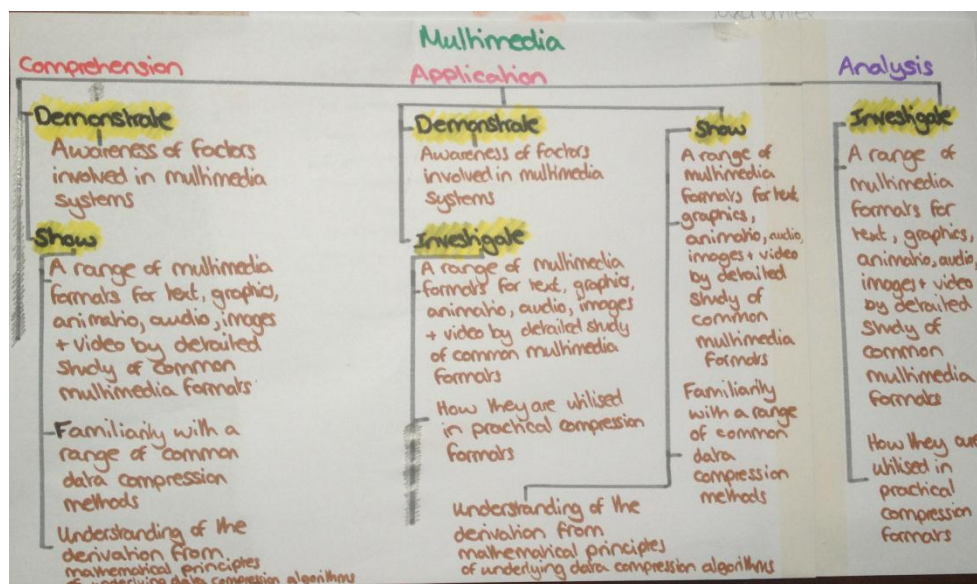 Multimedia
Comprehension
Demonstrate
Awareness of factors
involved in multimedia
systems
Show
A range of multimedia
formats for text, graphics,
animatio, audio, images
+ video by detrailed
study of common
multimedia formats
Familiarily with a
range of common
data compression
methods
Understanding of the
derivation from
mathematical principles
of underlying data compression algorithms
Application
Demonstrate
Awareness of factors
involved in multimedia
systems
Investigate
A range of multimedia
formats for text, graphic,
animatio, audio, images
+ video by detrailed study
of common multimedia
formats
How they are utilised
in practical compression
formats
Show
A range of
multimedia
formats for text,
graphics,
animatio, audio,
images + video
by detrailed
study of
common
multimedia
formats
Familiarily
with a range
of common
data
compression
methods
understanding of the
derivation from
mathematical principles
of underlying data compression algorithms
Analysis
Investigate
A range of
multimedia
formats for
text, graphics,
animatio, audio,
images + video
by detrailed
study of
common
multimedia
formats
How they are
utilised in
practical
compression
formats